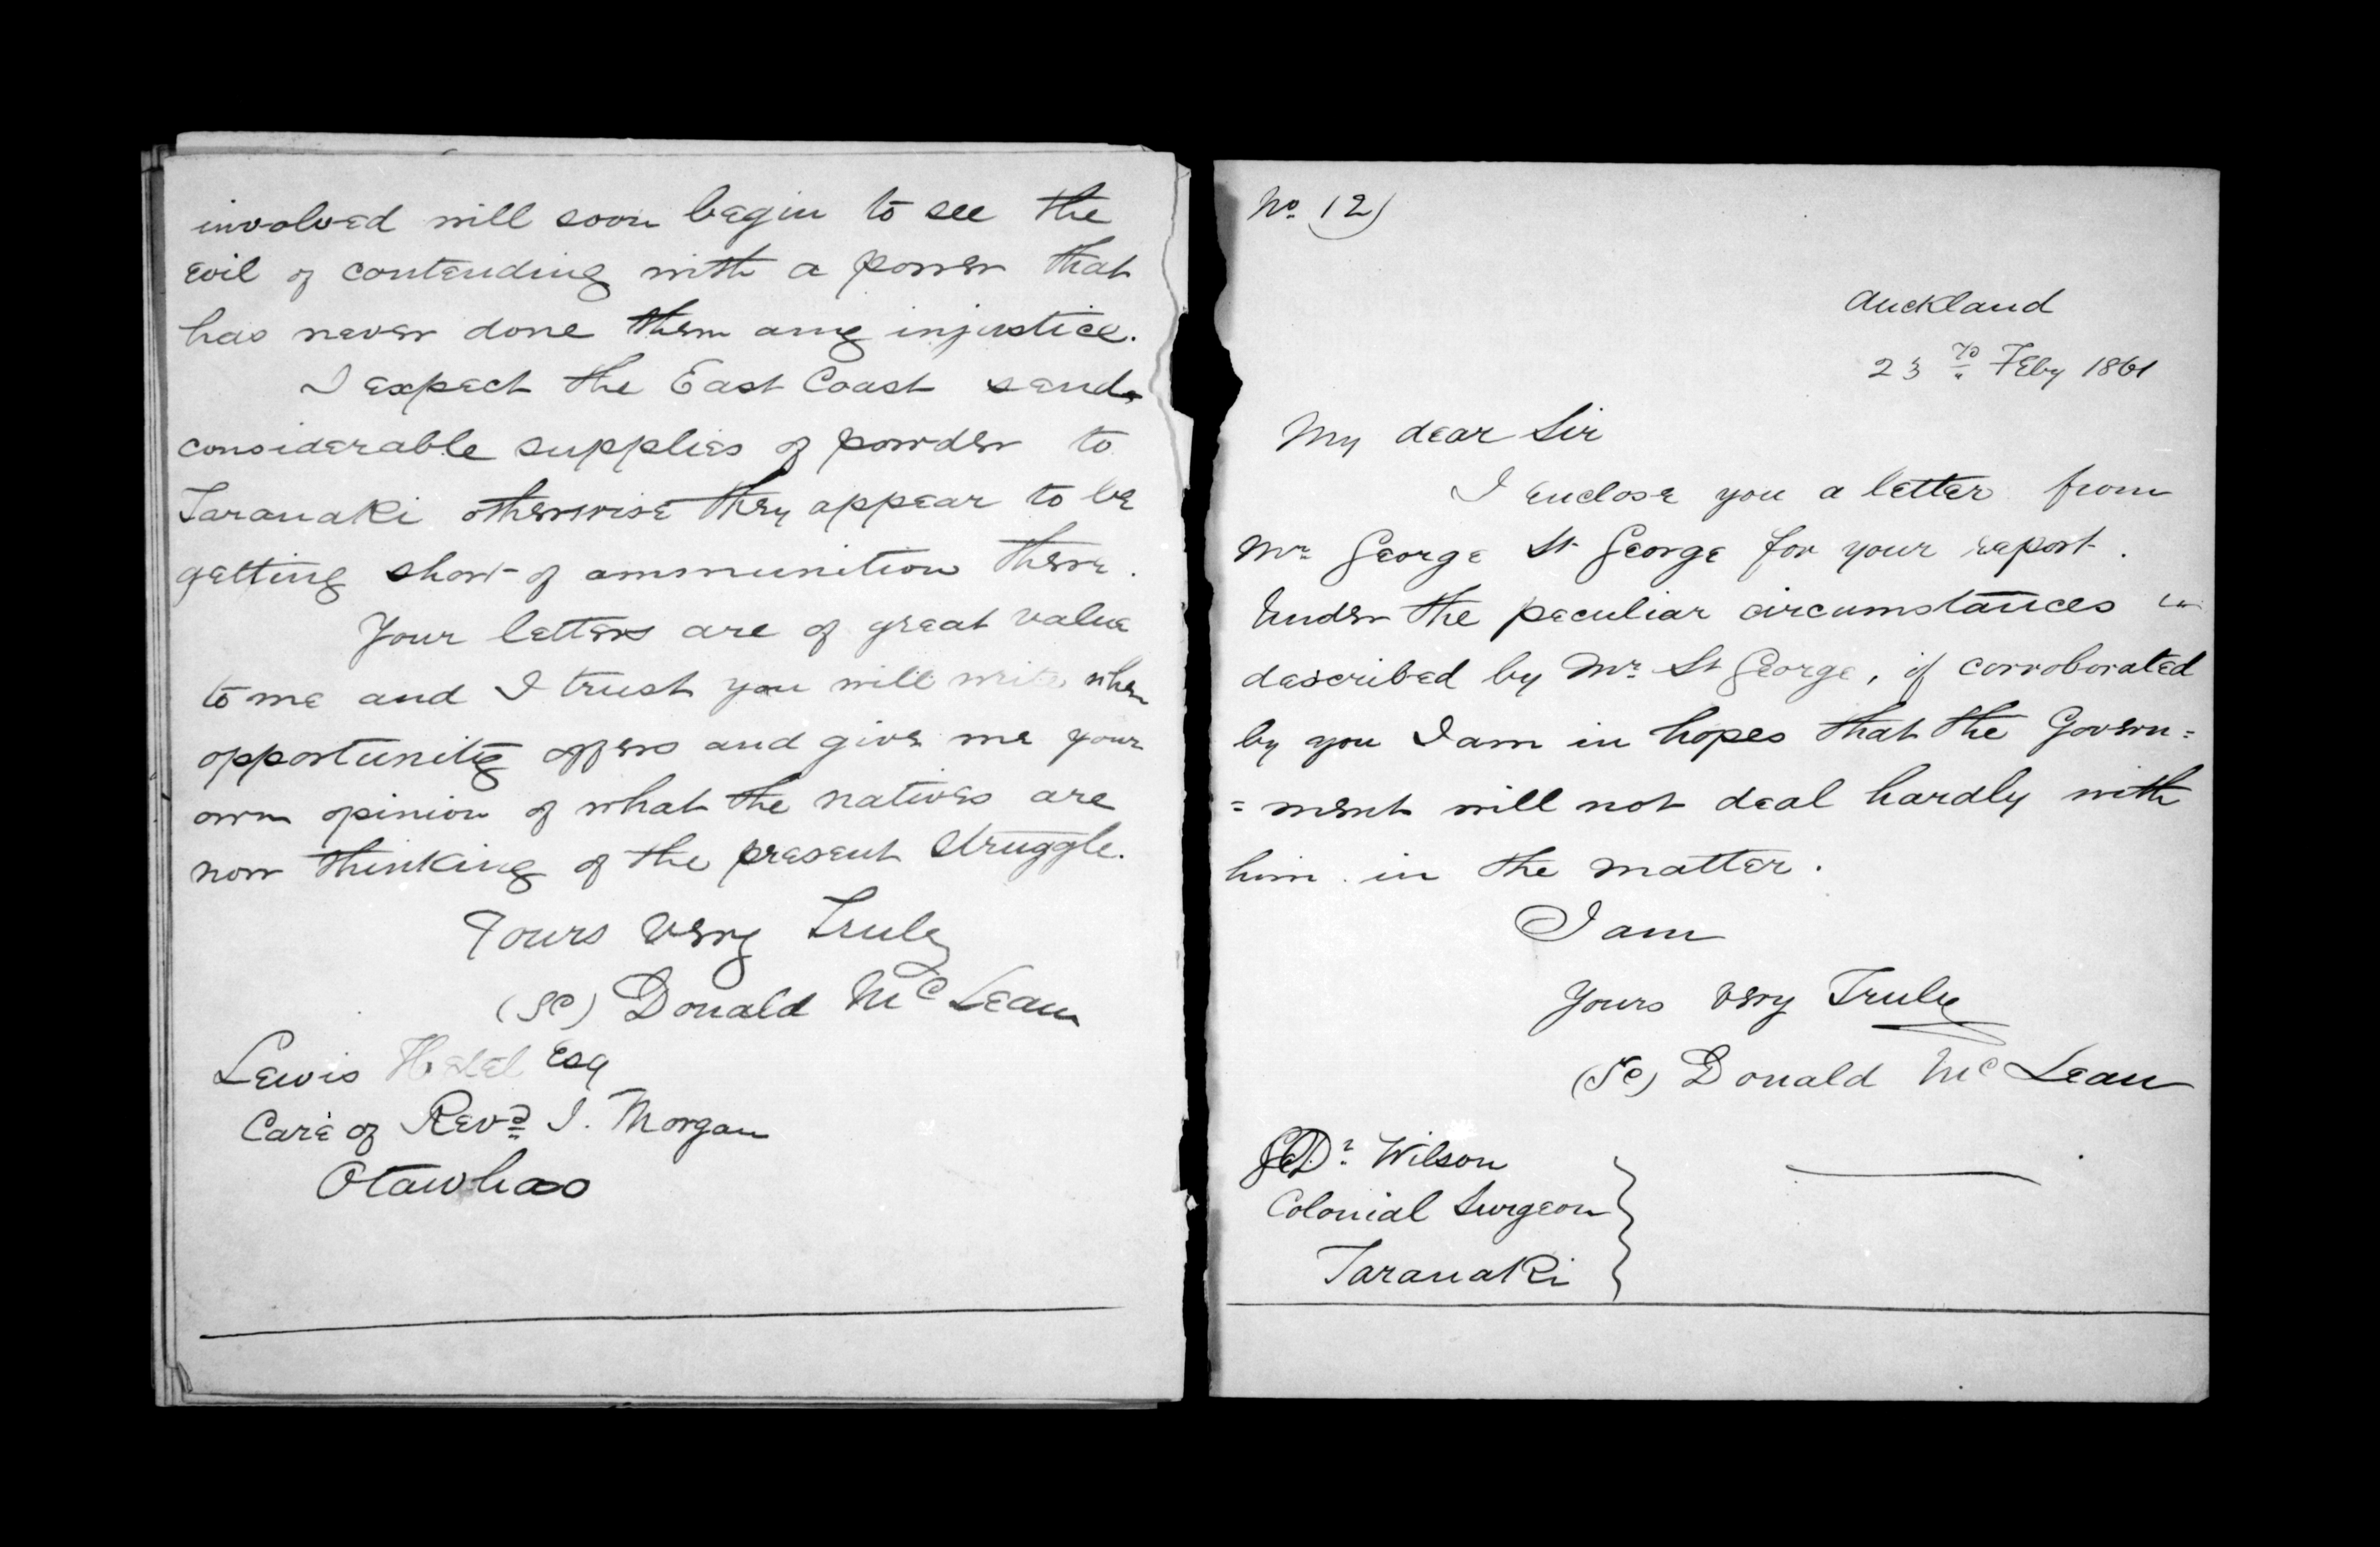 involved will soon begin to see the
evil of contending with a power that
has never done them any injustice.
I expect the East Coast sends
considerable supplies of powder to
Taranaki otherwise they appear to be
getting short of ammunition there.
Your letters are of great value
to me and I trust you will write when
opportunity offers and give me your
own opinion of what the natives are
now thinking of the present struggle.
Yours very Truly
Donald McLean
Lewis Esq
Care of Revd J. Morgan
Otawhao
No 12)
Auckland
23rd Feby 1861
My dear Sir
I enclose you a letter from
Mr George St George for your report.
Under the peculiar circumstances
described by Mr St George, if corroborated
by you I am in hopes that the Govern=
=ment will not deal hardly with
him in the matter.
I am
Yours very Truly
Donald McLean
Dr. Wilson
Colonial Surgeon
Taranaki